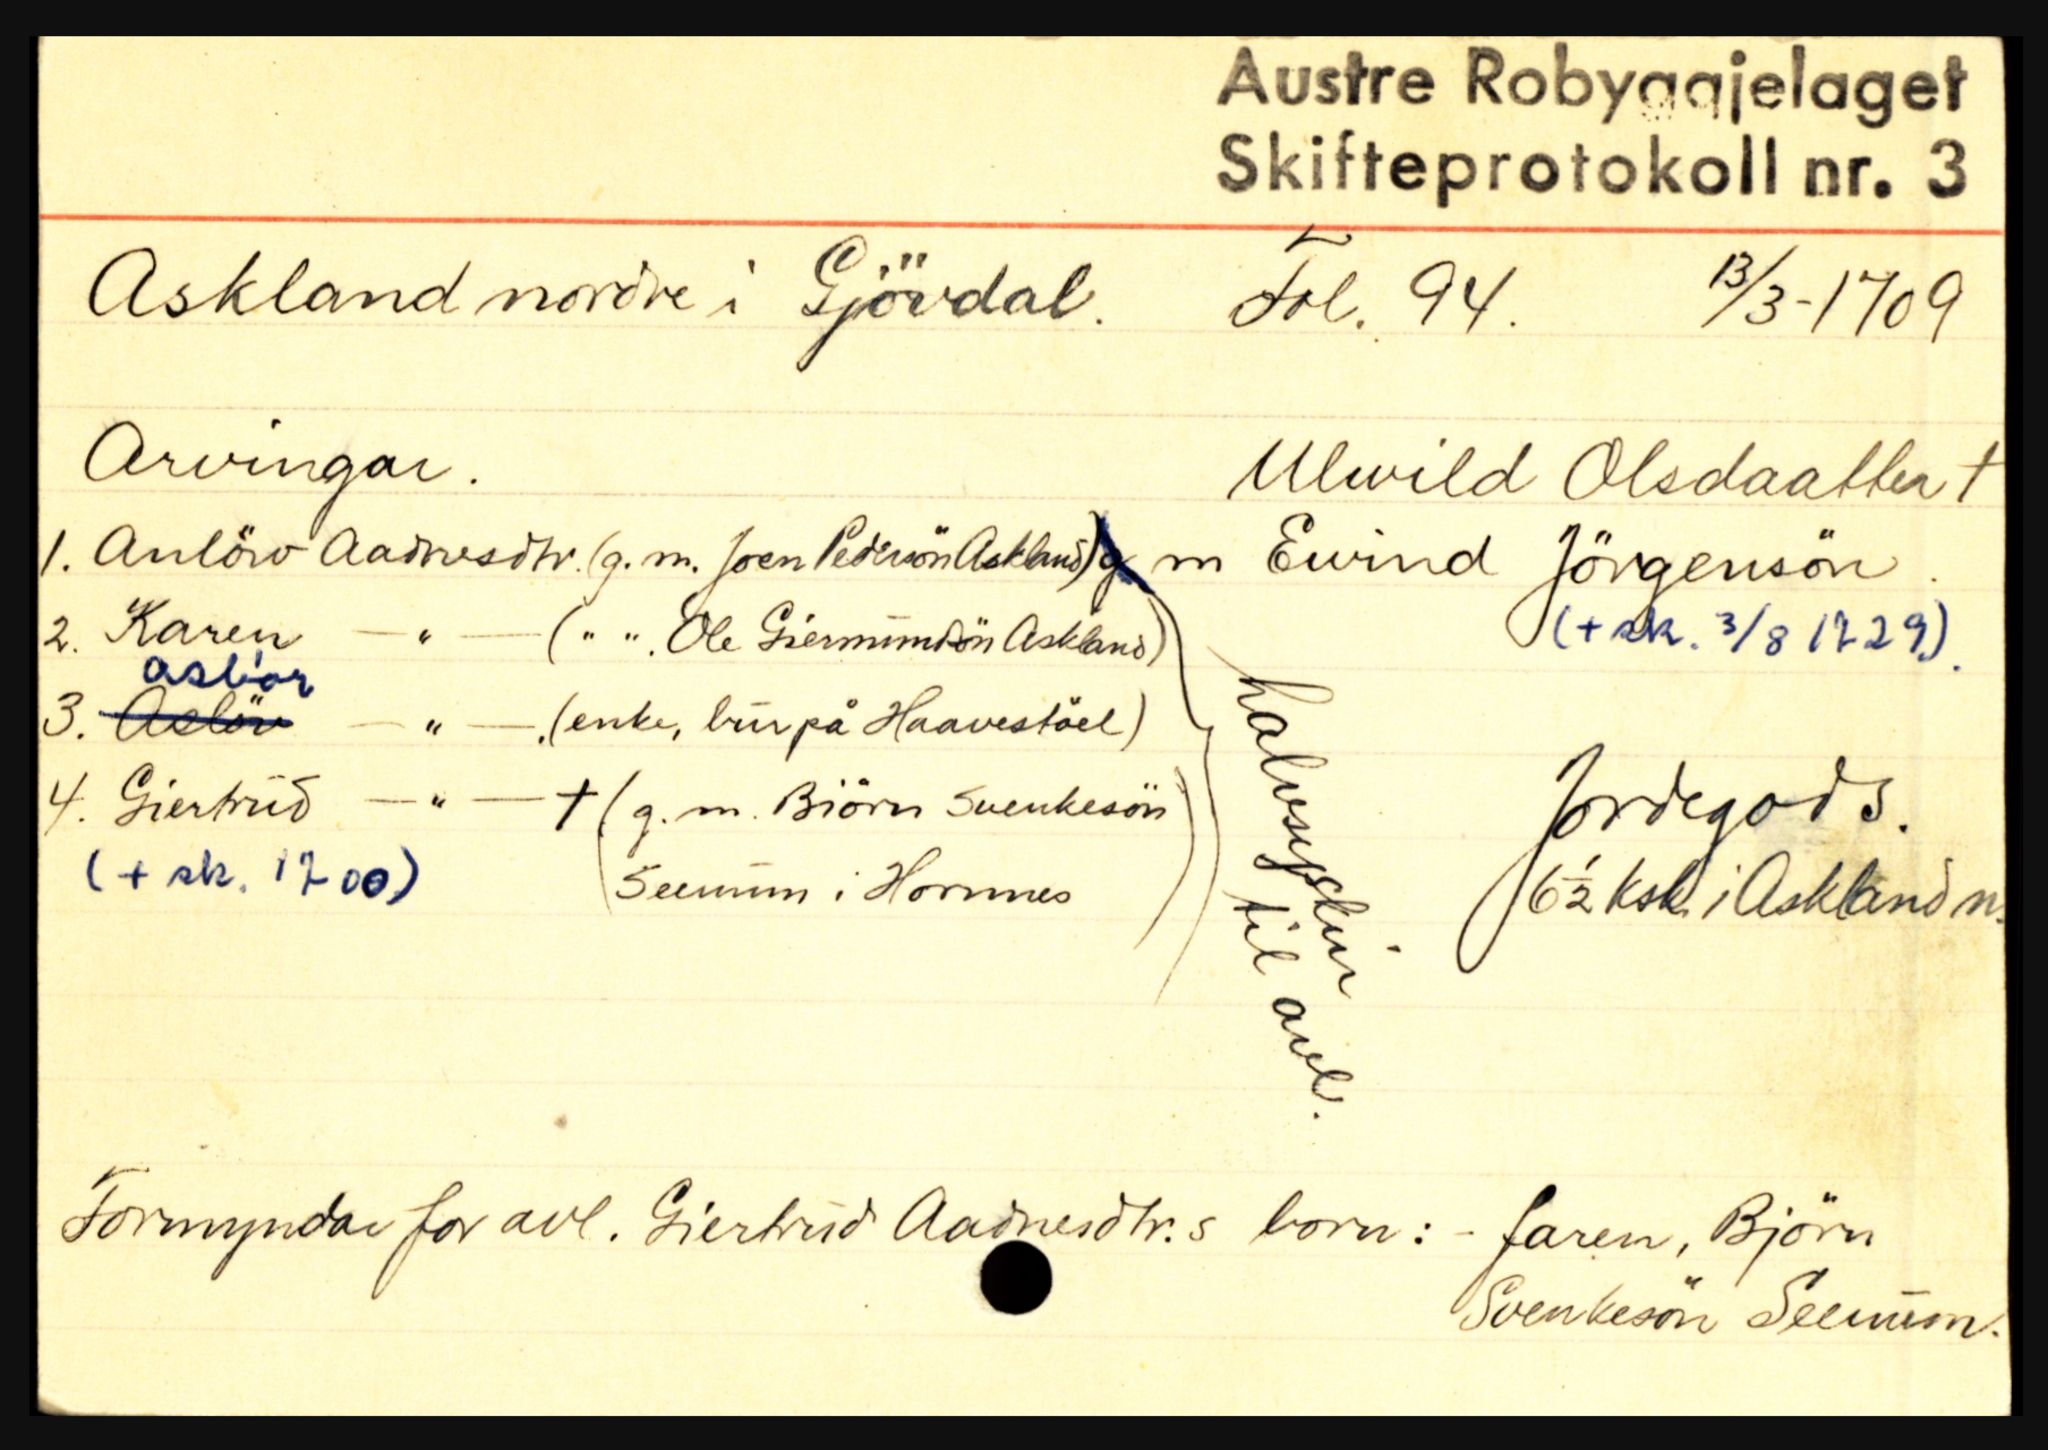 Austre Robyggjelaget
Skifteprotokoll nr. 3
Askland nordre i Gjövdal. Fol. 94. 13/3-1709
Arvingar. Ulwild Olsdaatter †
1. Anlöw Aadnesdtr. (g.m. Joen Pedersön Askland) g m Ewind Jörgensön.
2. Karen — " — (" ". Ole Giermundsön Askland) (+ sk. 3/8 1729).
aslior
3. Aslöw — " — (enke, bur på Haavestöel)
4. Giertrud — " — † (g. m. Biörn Svenkesön
(+ sk. 1700) Seeuum i Hornnes
halvsyskin
til avl.
Jordegods.
6½ ksk i Askland n.
Formyndar for avl. Giertrud Aadnesdtr.s born: - faren, Björn
Svenkesön Seeuum.